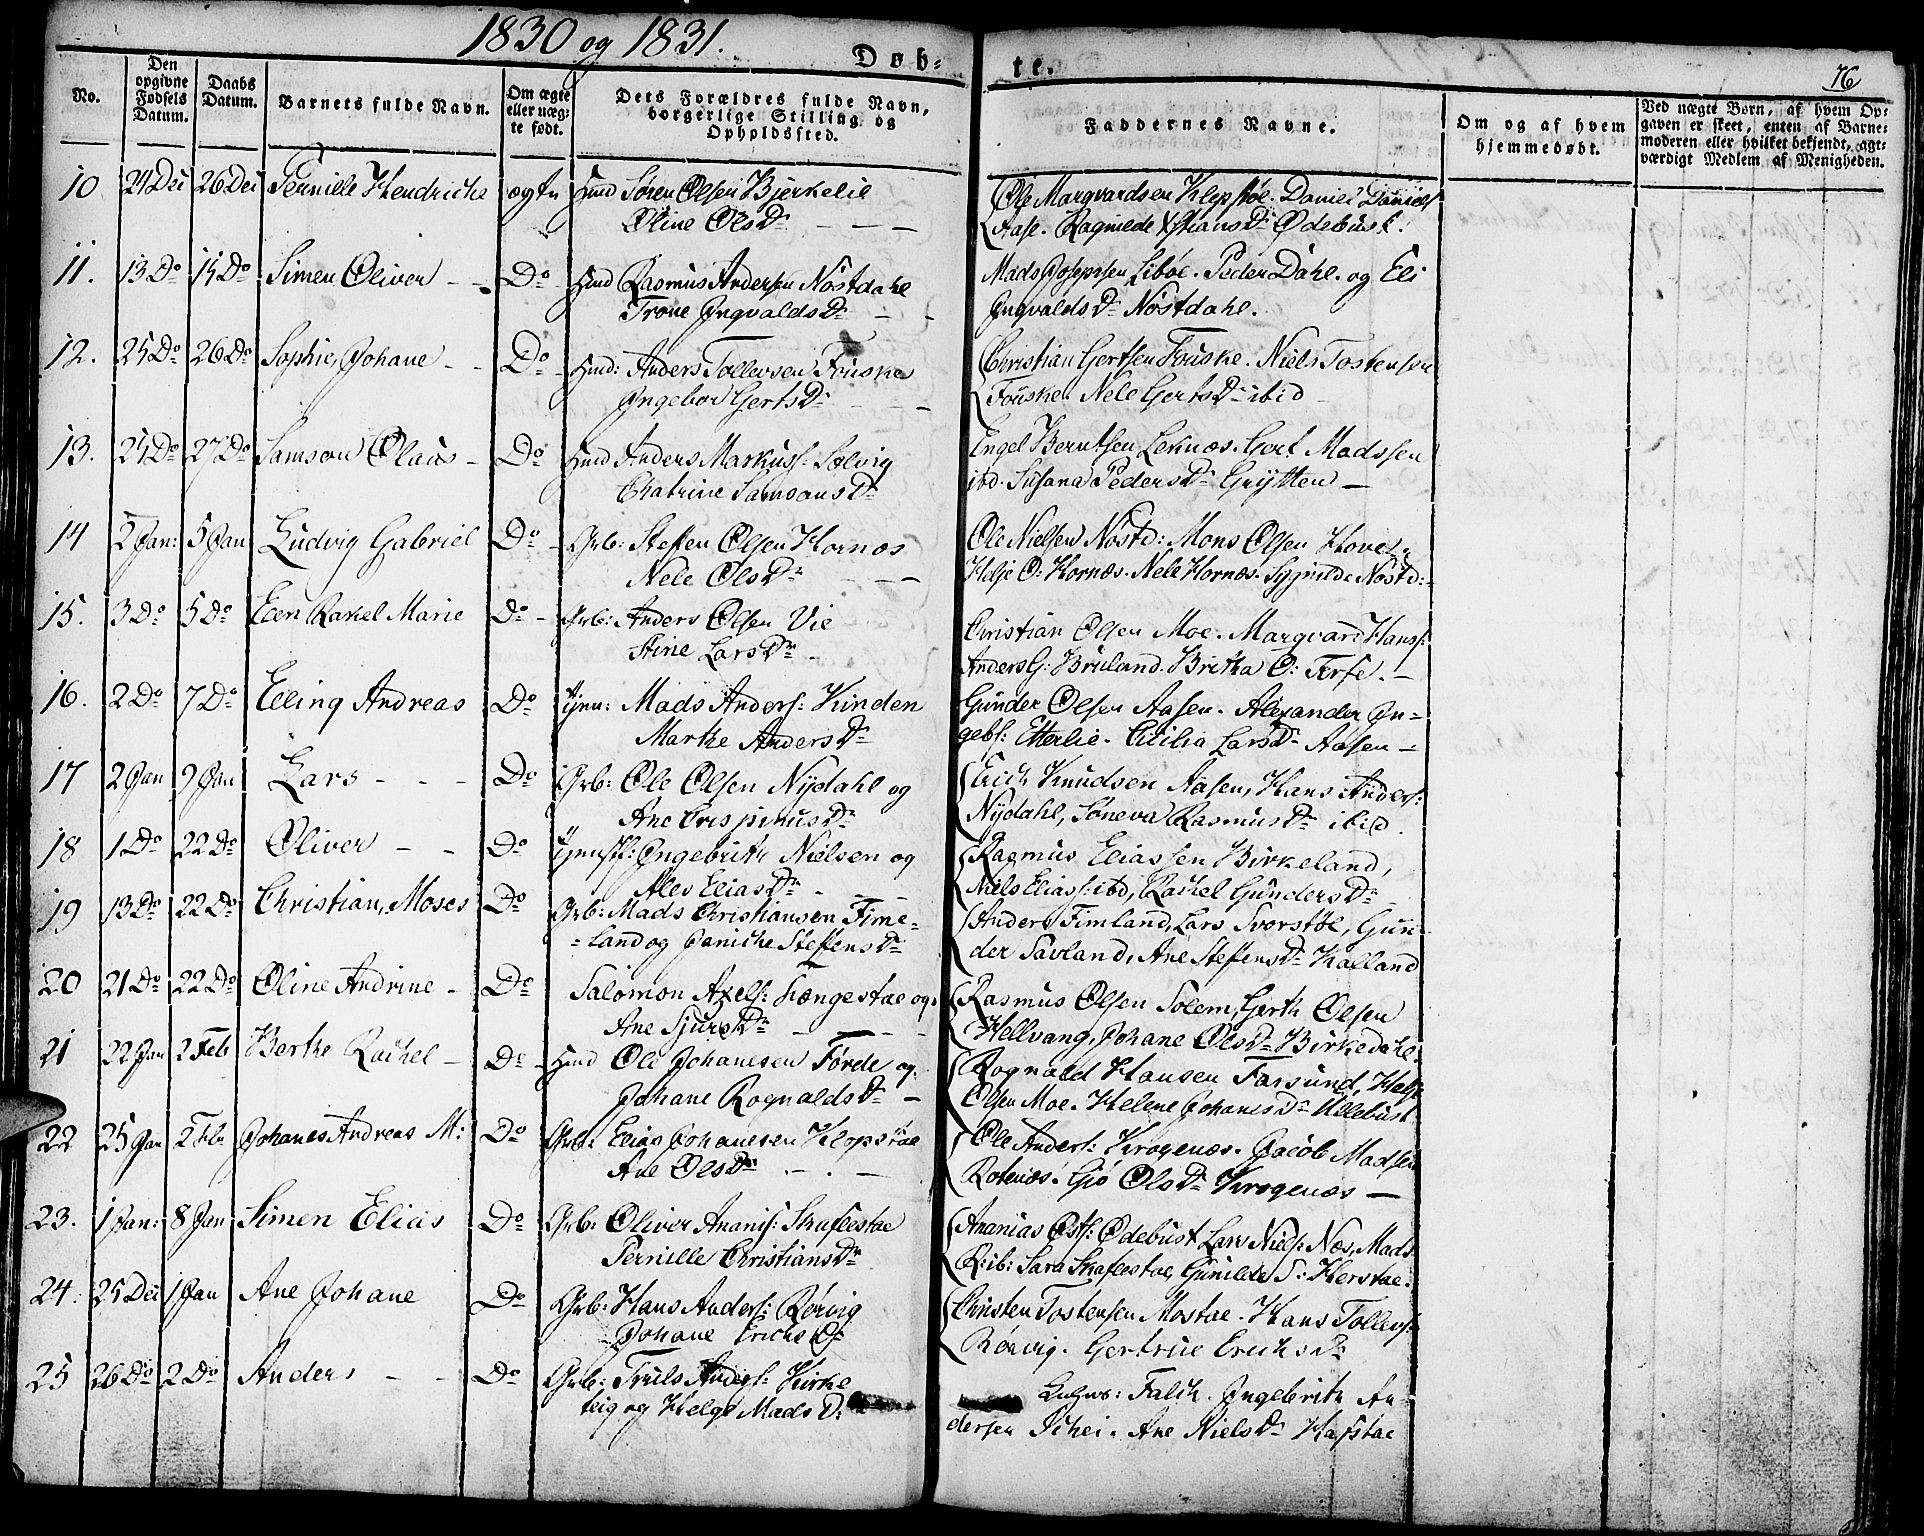 1830 og 1831.
Døb-
te.
76
No.
Den opgivne Fødsels Datum.
Daabs Datum.
Barnets fulde Navn.
Om ægte eller uæg-
te født.
Dets Forældres fulde Navn,
borgerlige Stilling og
Opholdssted.
Faddernes Navne.
Om og af hvem
hjemmedøbt.
Ved uægte Børn, af hvem Op-
gaven er skeet, enten af Barne-
moderen eller hvilket bekjendt, agt-
værdigt Medlem af Menigheden.
10 24 Dec 26 Dec Pernille Hendriche ægte Hmd Søren Olsen Bjerkelie
Oline Ols Dr
Ole Marqvardsen Klepstøe. Daniel Daniels
Aase. Ragnilde Xstians Dr Ødebust.
11. 13 Do 19 Do Simen Oliver Do Hmd Rasmus Andersen Nostdahl
Trone Ingvalds Dr
Mads Josephsen Liboe. Peder Dahl. og Eli
Ingvalds Dr Nostdahl.
12. 25 Do 26 Do Sophie, Johane Do Hmd: Anders Tollevsen Fouske
Ingebor Gerts Dr
Christian Gertsen Fouske. Niels Tostensen
Fouske. Nele Gerts Dr ibid
13. 25 Do 27 Do Samson Olaus Do Hmd Anders Markuss: Solvig
Chatrine Samsons Dr
Engel Berntsen Leknæs. Gert Madssen
ibd. Susana Peders Dr Grytten
14 2 Jan: 5 Jan Ludvig Gabriel Do Grb: Steffen Olsen Hornæs
Nele Ols Dr
Ole Nielsen Nostd: Mons Olsen Hovel.
Helje O: Hornæs. Nele Hornæs. Sygnilde Nostd:
15. 3 Do 5 Do Elen Rakel Marie Do Grb: Anders Olsen Vie
Stine Lars Dr
Christian Olsen Moe. Marqvard Hanss:
Anders G: Bruland. Britha O: Ferse.
16. 2 Do 7 Do Elling Andreas Do Tjen: Mads Anders: Kinden
Marthe Anders Dr
Gunder Olsen Aasen. Alexander In-
gebs: Etterlie. Cicilia Lars Dr Aasen
17 2 Jan 9 Jan Lars Do Grb: Ole Olsen Nydahl og
Ane Crispinus Dr
Erich Knudsen Aasen, Hans Anders:
Nydahl, Søneva Rasmus Dr ibid.
18 1 Do 22 Do Oliver Do Ingebrith Nielsen og
Ales Elias Dr
Rasmus Eliassen Birkeland,
Niels Eliass: ibd, Rachel Gunders Dr
19 13 Do 22 Do Christian, Moses Do Grb: Mads Christiansen Time-
=land og Janiche Steffens Dr
Anders Timland, Lars Svorstøl, Gun-
der Savland, Ane Steffens Dr Kalland
20 21 Do 22 Do Oline Andrine Do Salomon Axels: Længestae og
Ane Sjurs Dr
Rasmus Olsen Solem, Gerth Olsen
Hellvang, Johane Ols Dr Birkedahl.
21 22 Jan 2 Feb Berthe Rachel Do Hmd Ole Johanesen Førde og
Johane Rognalds Dr
Rognald Hansen Farsund, Helje
Olsen Moe. Helene Johanes Dr Ullebust
22 25 Jan 2 Feb Johanes Andreas M: Do Grb: Elias Johanesen Klopstae
Ane Ols Dr
Ole Anders: Krogenæs. Jacob Madsen
Rotenæs. Gjø Ols Dr Krogenæs
23. 1 Jan: 8 Jan Simen Elias Do Grb: Oliver Ananis: Skaflestae
Pernille Christians Dr
Ananias Ødebust Lars Niels: Næs, Mads
R: ib: Sara Skaflestae, Gunilde S: Herstae.
24: 25 Dec 1 Jan Ane Johane Do Grb: Hans Anders: Rørvig
Johane Erichs Dr
Christen Tostensen Mostae. Hans Tollevs:
Rørvig. Gertrue Erichs Dr
25 26 Do 2 Do Anders Do Grb: Truls Anders: Kirke
teig og Helge Mads Dr
Falch. Ingebrith An-
dersen Schei. Ane Niels Dr Hafstae